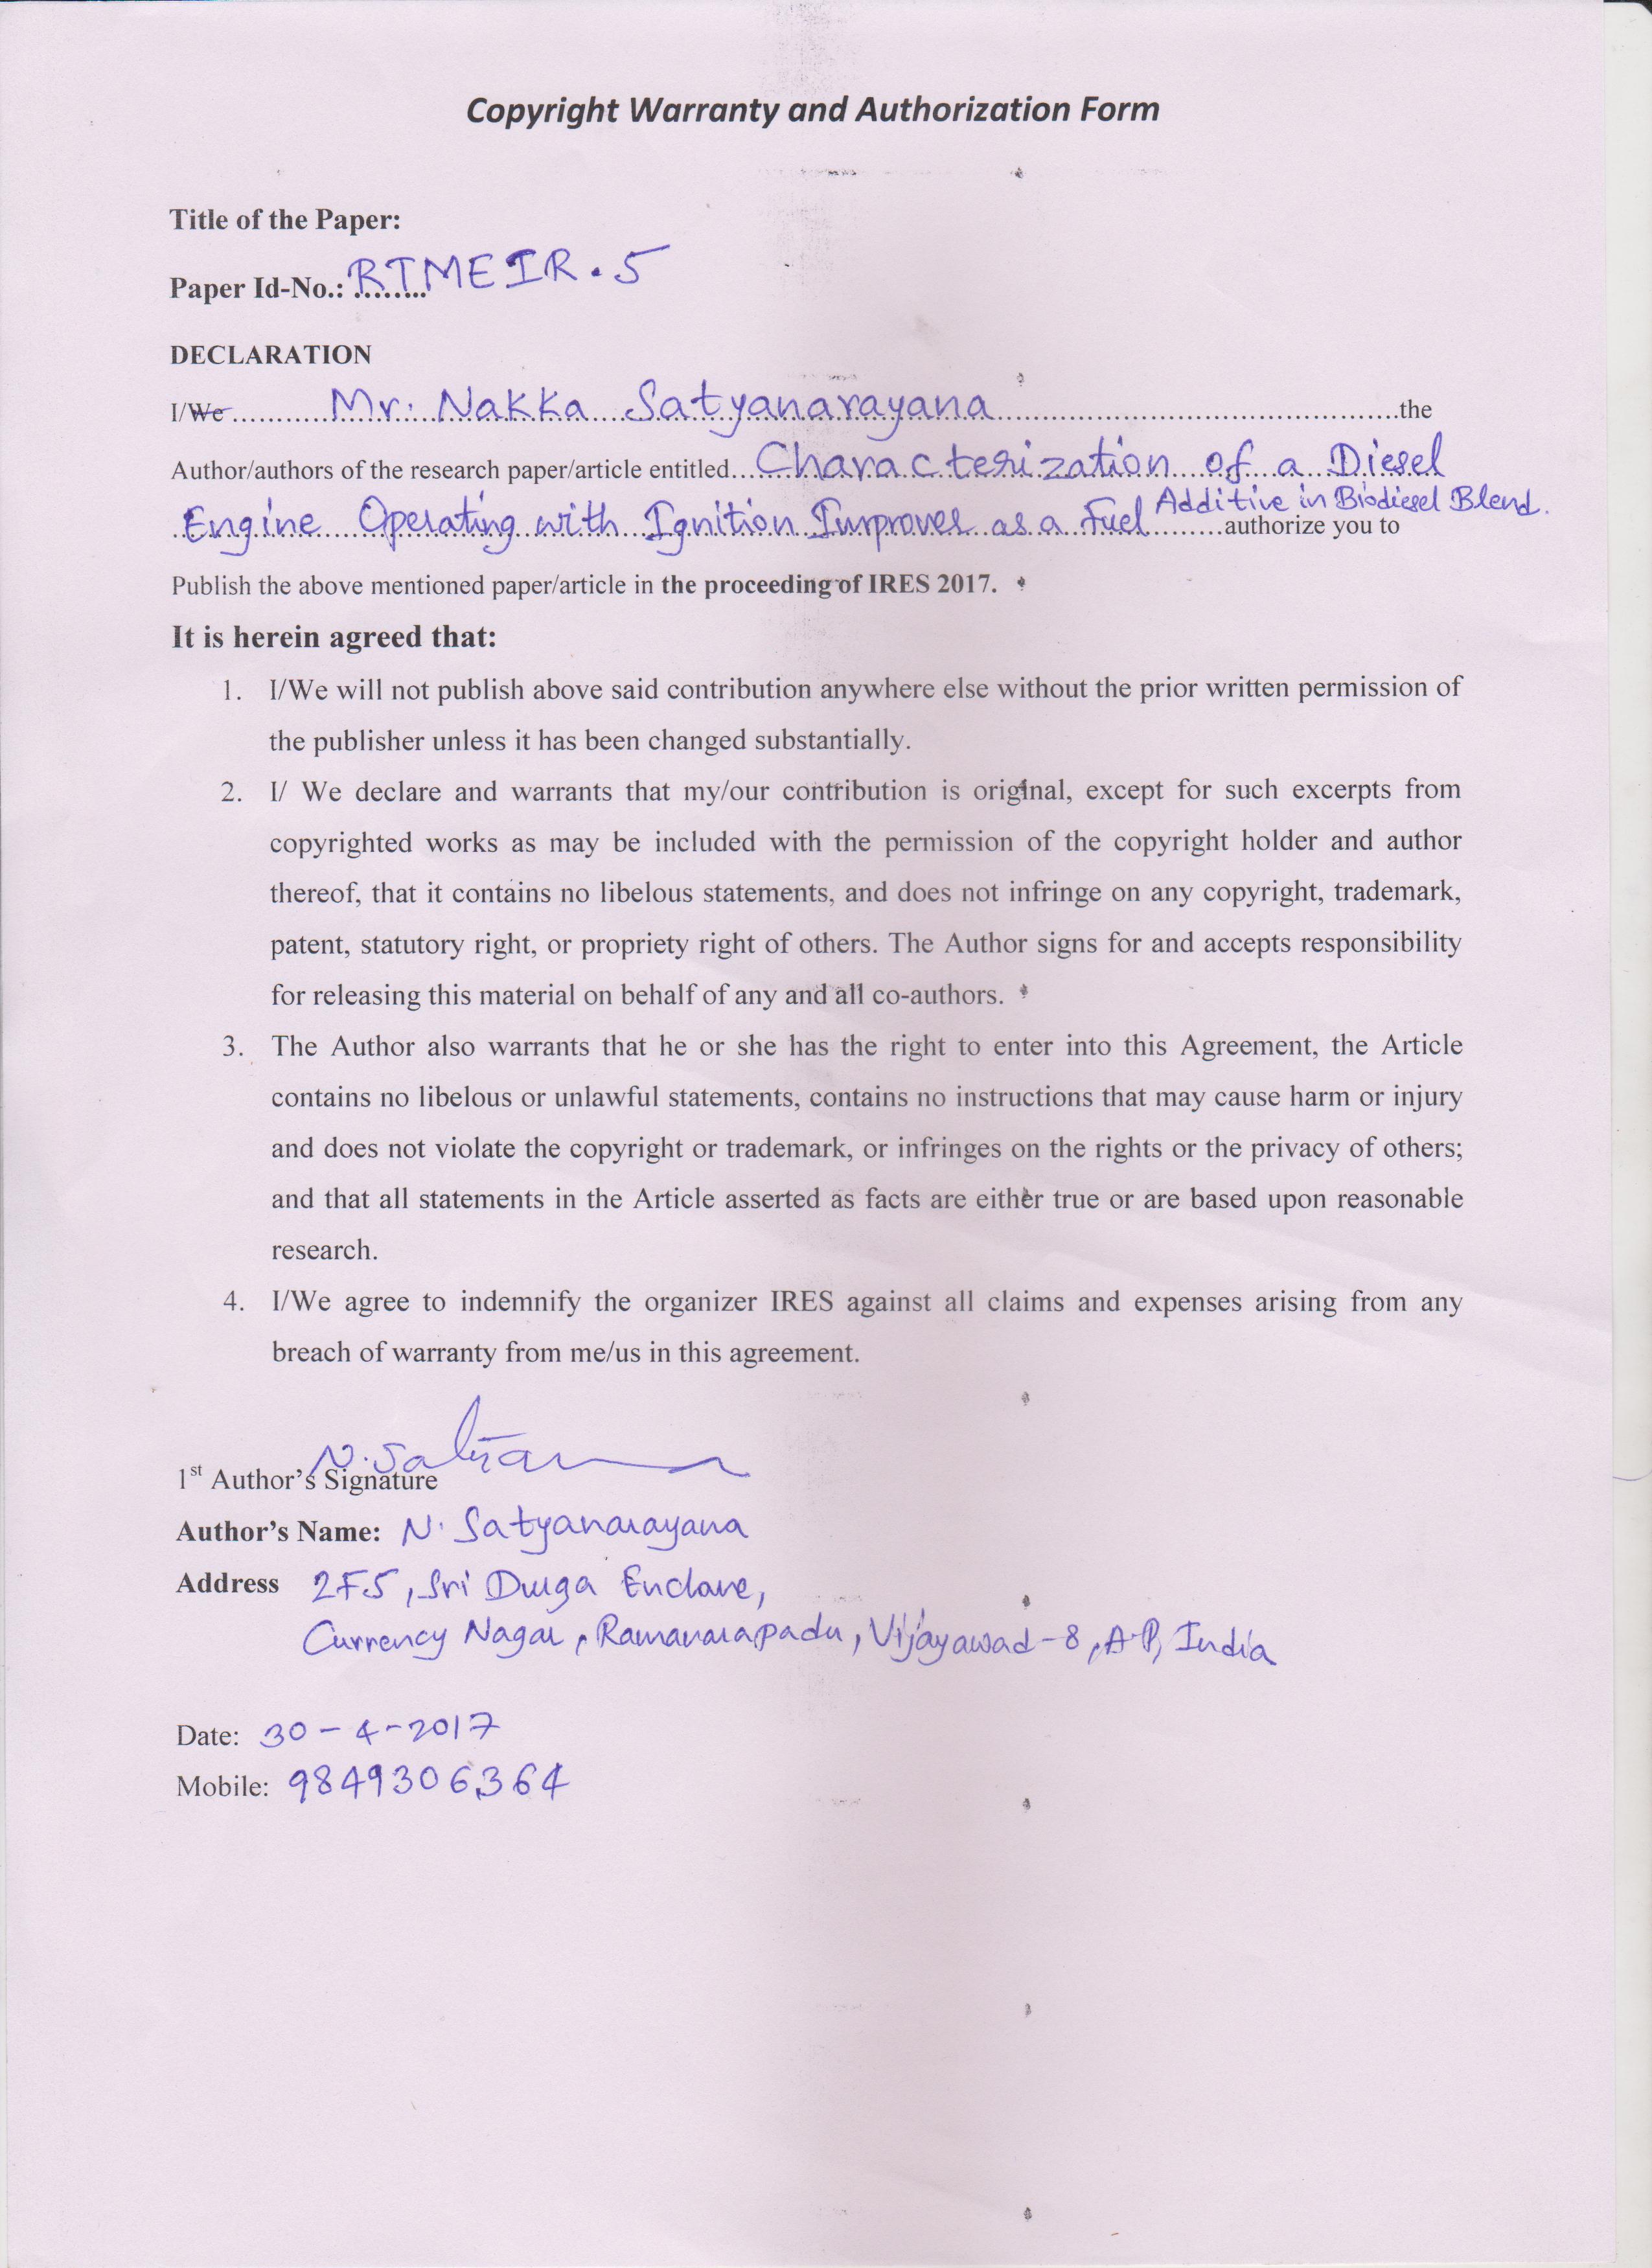 Copyright Warranty and Authorization Form
Title of the Paper:
Paper Id-No.: ........ RTMEIR.5
DECLARATION
I/We Mr. Nakka Satyanarayana the
Author/authors of the research paper/article entitled... Characterization of a Diesel
Engine Operating with Ignition Improver as a Fuel Additive in Biodiesel Blend. authorize you to
Publish the above mentioned paper/article in the proceeding of IRES 2017.
It is herein agreed that:
1. I/We will not publish above said contribution anywhere else without the prior written permission of
the publisher unless it has been changed substantially.
2. I/ We declare and warrants that my/our contribution is original, except for such excerpts from
copyrighted works as may be included with the permission of the copyright holder and author
thereof, that it contains no libelous statements, and does not infringe on any copyright, trademark,
patent, statutory right, or propriety right of others. The Author signs for and accepts responsibility
for releasing this material on behalf of any and all co-authors.
3. The Author also warrants that he or she has the right to enter into this Agreement, the Article
contains no libelous or unlawful statements, contains no instructions that may cause harm or injury
and does not violate the copyright or trademark, or infringes on the rights or the privacy of others;
and that all statements in the Article asserted as facts are either true or are based upon reasonable
research.
4. I/We agree to indemnify the organizer IRES against all claims and expenses arising from any
breach of warranty from me/us in this agreement.
1st Author's Signature
Author's Name: N. Satyanarayana
Address 2F5, Sri Durga Enclave,
Currency Nagar, Ramavarapadu, Vijayawad-8, A.P, India
Date: 30-4-2017
Mobile: 9849306364